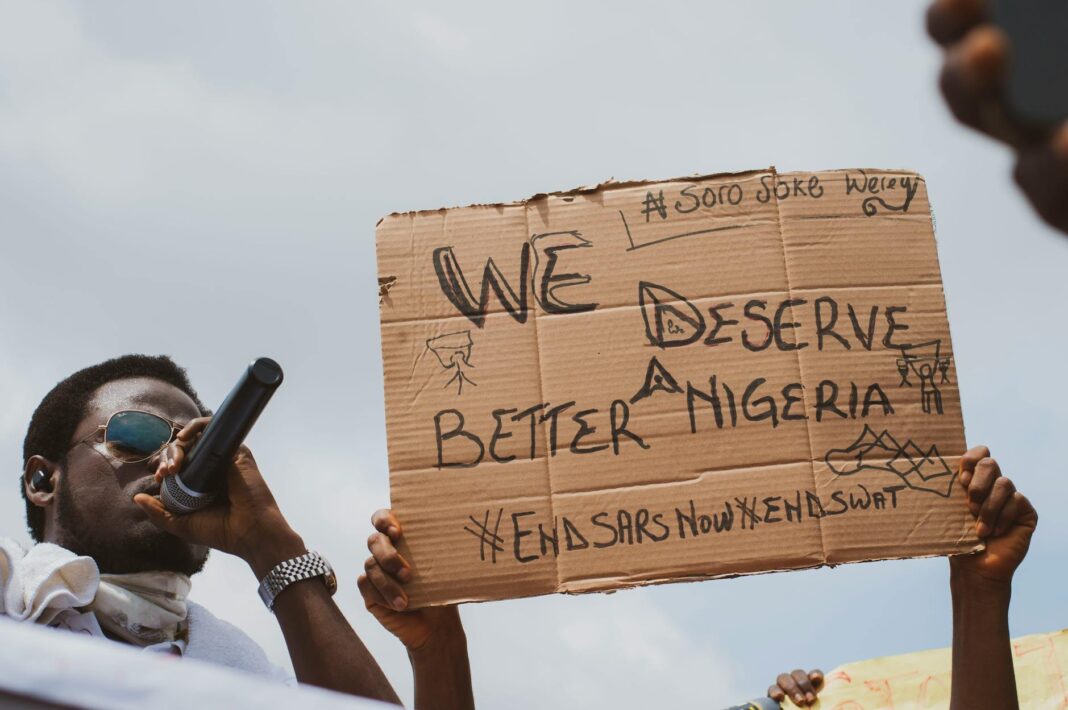 #Soro Soke Werey
WE
DESERVE
BETTER A NIGERIA
#ENDSARSNOW #ENDSWAT